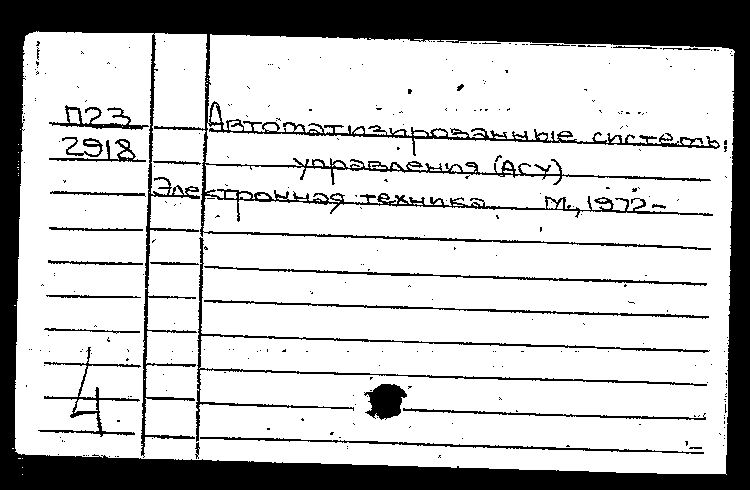 П23 Автоматизированные системы
2918 управления (АСУ)
Электронная техника. М., 1972-
4